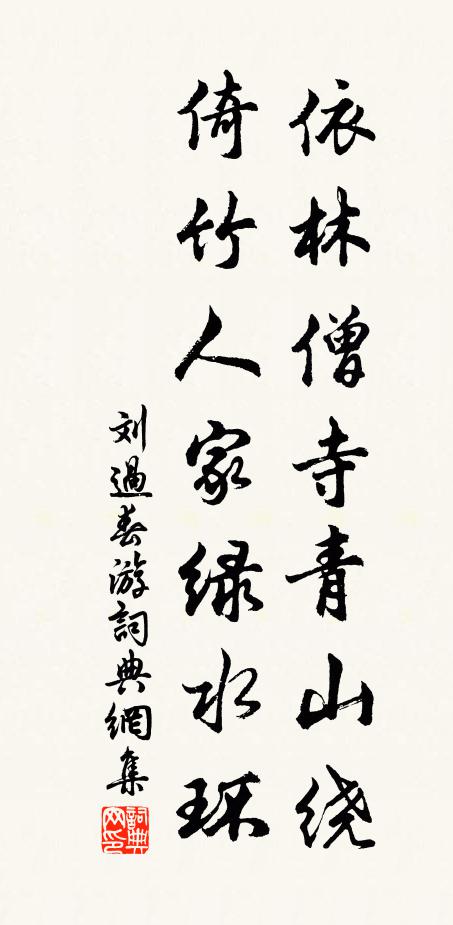 依林僧寺青山绕
倚竹人家绿水环
刘過春游詞典網集
詞典网印